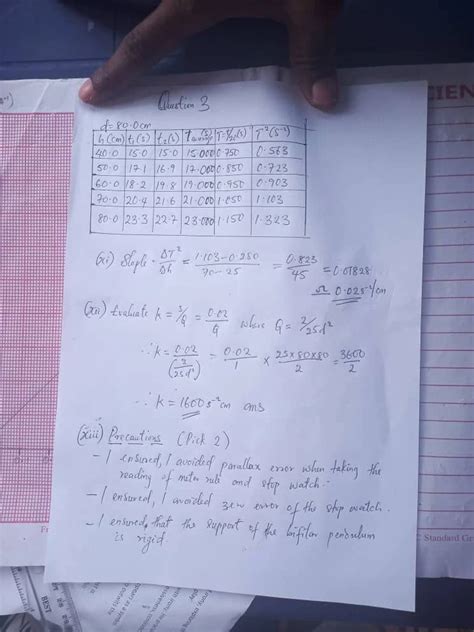 Question 3
d = 80.0cm
h (cm) t₁(s) t₂(s) t average (s) T=t/20 (s) T²(s⁻²)
40.0 15.0 15.0 15.000 0.750 0.563
50.0 17.1 16.9 17.000 0.850 0.723
60.0 18.2 19.8 19.000 0.950 0.903
70.0 20.4 21.6 21.000 1.050 1.103
80.0 23.3 22.7 23.000 1.150 1.323
(xi) Slope = ΔT²/Δh = 1.103-0.280/70-25 = 0.823/45 = 0.01828
Ω 0.02s⁻²/cm
(xii) Evaluate k = s/Q = 0.02/Q where Q = 2/25d²
∴ k = 0.02/(2/25d²) = 0.02/1 × 25×80×80/2 = 3600/2
∴ k = 1600s⁻²cm ans
(xiii) Precautions (Pick 2)
- I ensured, I avoided parallax error when taking the
reading of meter rule and stop watch.
- I ensured, I avoided zero error of the stop watch.
- I ensured, that the support of the bifilar pendulum
is rigid
CIEN
Standard Gr